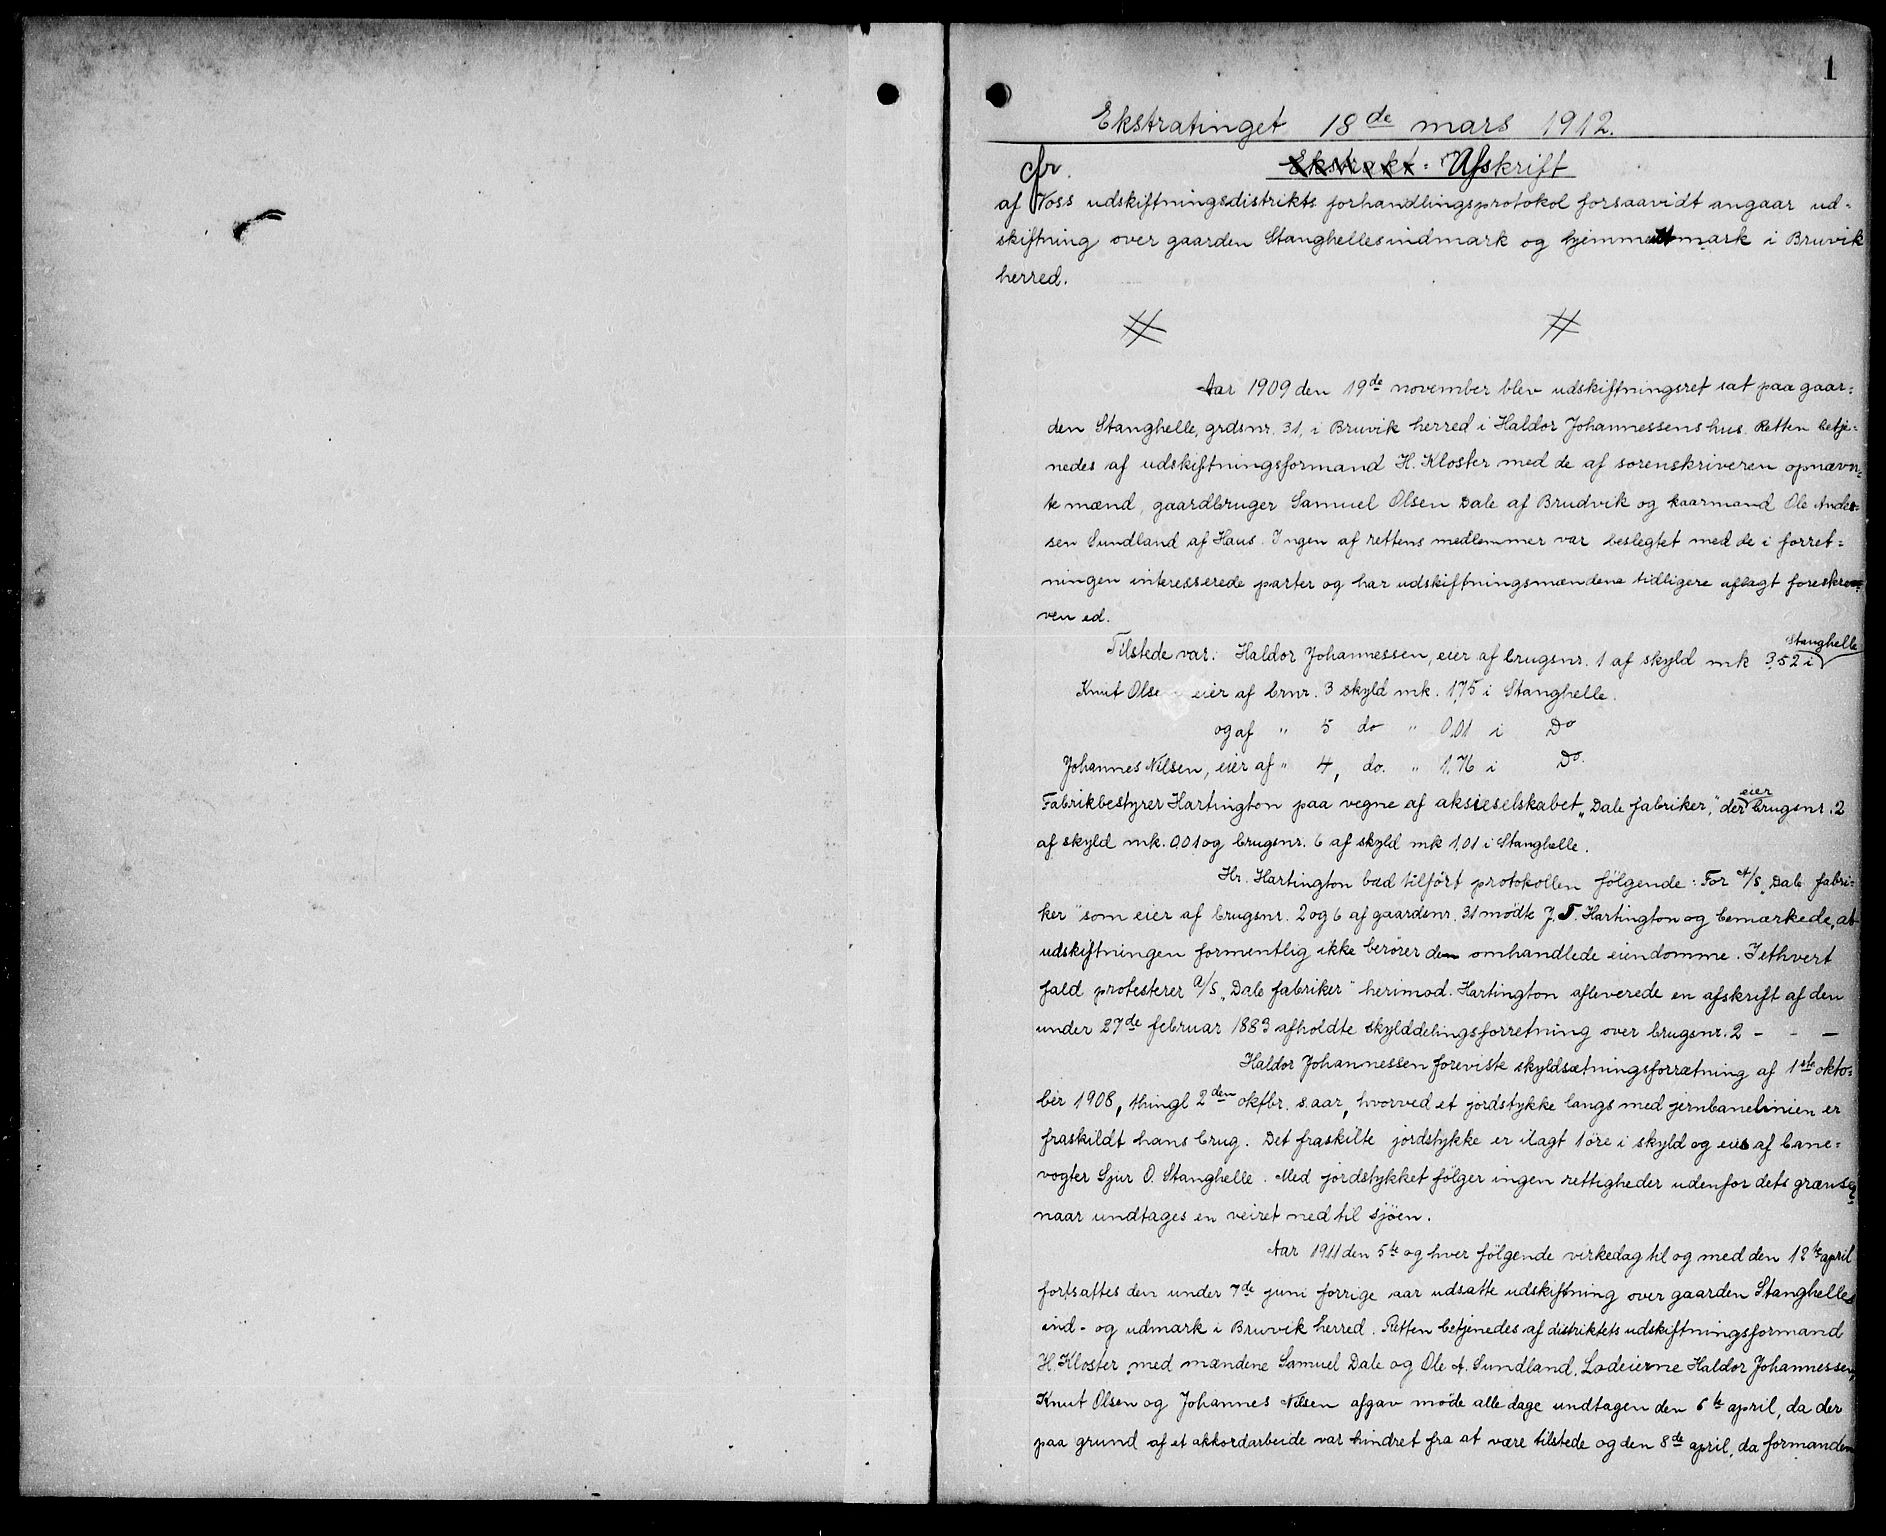 1
Ekstratinget 18de mars 1912.
cfr. Ekstrakt= Afskrift
af Voss udskiftningsdistrikts forhandlingsprotokol forsaavidt angaar ud=
skiftning over gaarden Stanghelles indmark og hjemmeutmark i Bruvik
herred.
Aar 1909 den 19de november blev udskiftningsret sat paa gaar=
den Stanghelle, grdsnr. 31, i Bruvik herred i Haldor Johannessens hus. Retten betje=
nedes af udskiftningsformand H. Kloster med de af sorenskriveren opnævn=
te mænd, gaardbruger Samuel Olsen Dale af Brudvik og kaarmand Ole Ander=
sen Sundland af Haus. Ingen af rettens medlemmer var beslegtet med de i forret=
ningen interesserede parter og har udskiftningsmændene tidligere aflagt foreskre=
ven ed.
Tilstede var: Haldor Johannessen, eier af brugsnr. 1 af skyld mk 3,52 i Stanghelle
Knut Olsen eier af brnr. 3 skyld mk. 1,75 i Stanghelle.
og af " 5 do " 0,01 i Do
Johannes Nilsen, eier af " 4, do. " 1,76 i Do.
Fabrikbestyrer Hartington paa vegne af aksieselskabet "Dale fabriker," der eier brugsnr. 2
af skyld mk. 0,01 og brugsnr. 6 af skyld mk 1,01 i Stanghelle.
Hr. Hartington bad tilført protokollen følgende: For A/S "Dale fabri=
ker" som eier af brugsnr. 2 og 6 af gaardsnr. 31 mødte J. T. Hartington og bemærkede, at
udskiftningen formentlig ikke berører den omhandlede eiendomme. I ethvert
fald protesterer A/S "Dale fabriker" herimod. Hartington afleverede en afskrift af den
under 27de februar 1883 afholdte skylddelingsforretning over brugsnr. 2 - - -
Haldor Johannessen foreviste skyldsætningsforrætning af 1ste okto=
ber 1908, thingl 2den oktbr. s. aar, hvorved et jordstykke langs med jernbanelinien er
fraskildt hans brug. Det fraskilte jordstykke er ilagt 1 øre i skyld og eies af bane=
vogter Sjur O. Stanghelle. Med jordstykket følger ingen rettigheder udenfor dets grænser
naar undtages en veiret ned til sjøen.
Aar 1911 den 5te og hver følgende virkedag til og med den 12te april
fortsattes den under 7de juni forrige aar udsatte udskiftning over gaarden Stanghelles
ind- og udmark i Bruvik herred. Retten betjenedes af distriktets udskiftningsformand
H. Kloster med mændene Samuel Dale og Ole A. Sundland. Lodeierne Haldor Johannessen,
Knut Olsen og Johannes Nilsen afgav møde alle dage undtagen den 6te april, da der
paa grund af et akkordarbeide var hindret fra at være tilstede og den 8de april, da formanden